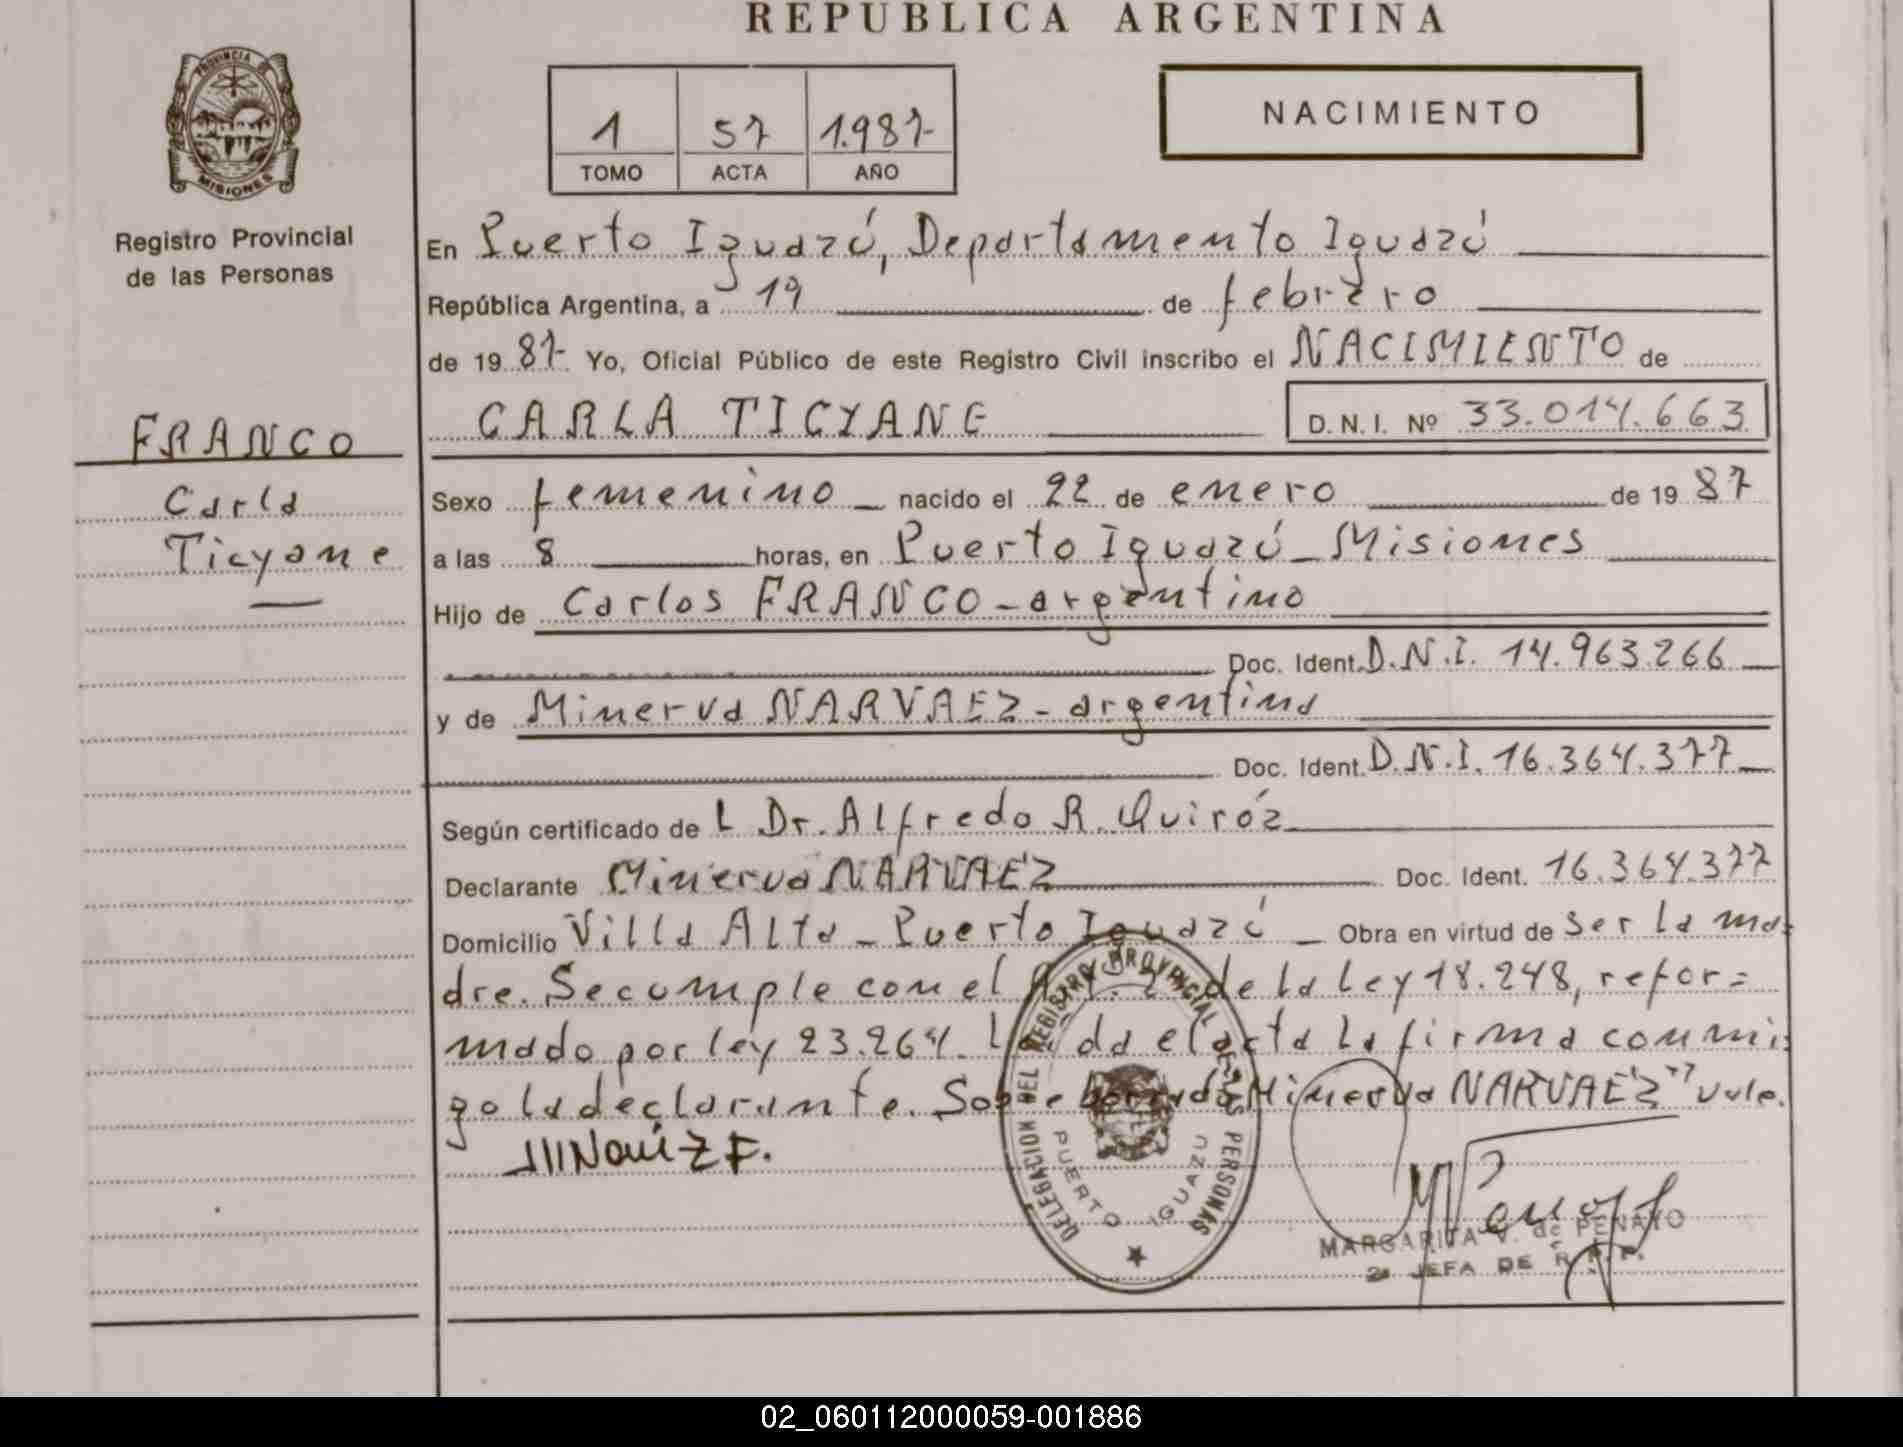 REPUBLICA ARGENTINA
PROVINCIA DE
MISIONES
1 57 1.987-
TOMO ACTA AÑO
NACIMIENTO
Registro Provincial
de las Personas
En Puerto Iguazú, Departamento Iguazú
República Argentina, a 19 de febrero
de 1987- Yo, Oficial Público de este Registro Civil inscribo el NACIMIENTO de
CARLA TICYANE D.N.I. Nº 33.014.663
FRANCO
Carla
Ticyane
Sexo femenino nacido el 22 de enero de 1987
a las 8 horas, en Puerto Iguazú - Misiones
Hijo de Carlos FRANCO - argentino
Doc. Ident. D.N.I. 14.963.266
y de Minerva NARVAEZ - argentina
Doc. Ident. D.N.I. 16.364.377
Según certificado de L Dr. Alfredo R. Quiróz
Declarante Minerva NARVAEZ Doc. Ident. 16.364.377
Domicilio Villa Alta - Puerto Iguazú Obra en virtud de ser la ma=
dre. Se cumple con el Art. 2 de la Ley 18.248, refor=
mado por ley 23.264. Leída el acta la firma conmi=
go la declarante. Sobre borrado Minerva NARVAEZ" vale.
DELEGACION DEL REGISTRO PROVINCIAL DE LAS PERSONAS
PUERTO IGUAZU
MARGARITA V. de PENAYO
2a JEFA DE R. P. P.
02_060112000059-001886